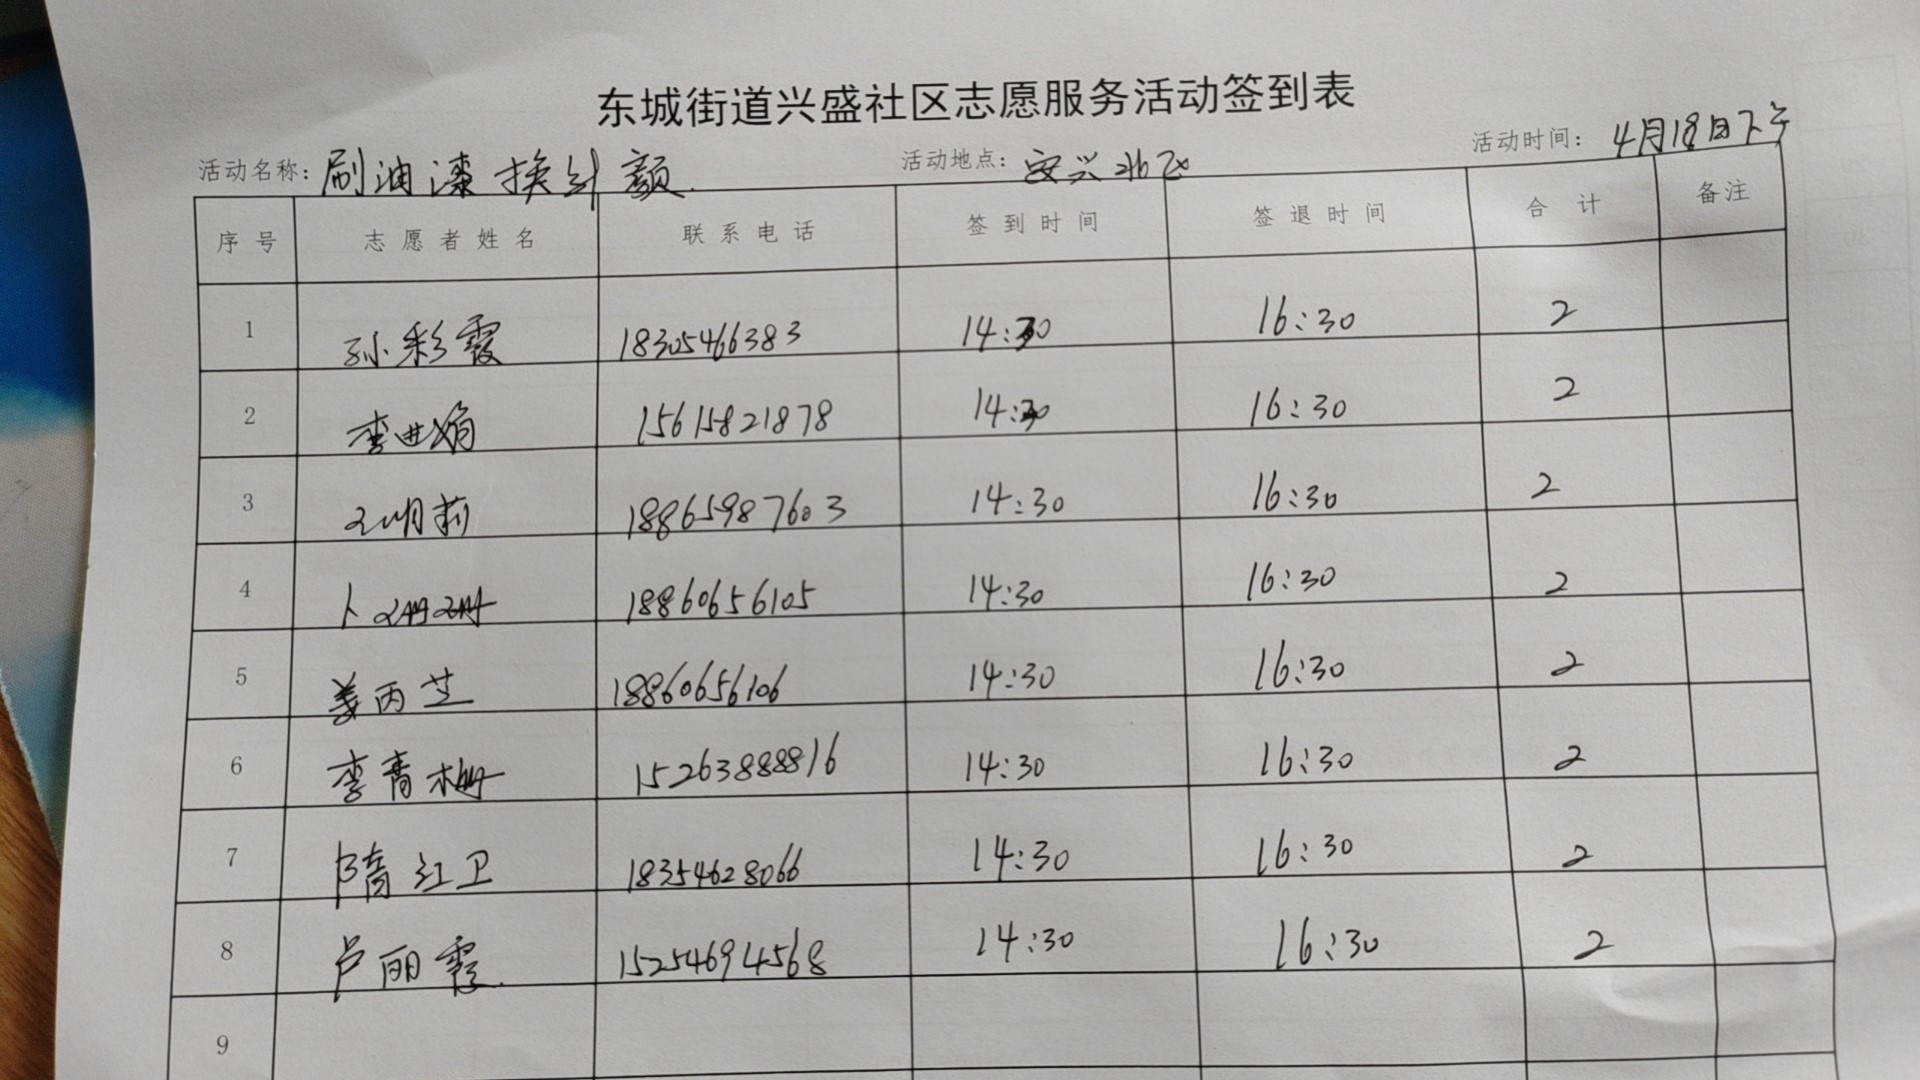 东城街道兴盛社区志愿服务活动签到表
活动名称: 刷油漆换 颜 活动地点: 安兴北区 活动时间: 4月18日下午
序号 志愿者姓名 联系电话 签到时间 签退时间 合计 备注
1 孙彩霞 18305466383 14:30 16:30 2
2 李世娟 15615821878 14:30 16:30 2
3 王明莉 18865987603 14:30 16:30 2
4 卜珊珊 18860656105 14:30 16:30 2
5 姜丙芝 18860656106 14:30 16:30 2
6 李青梅 15263888816 14:30 16:30 2
7 隋红卫 18354628066 14:30 16:30 2
8 卢丽霞 15254694568 14:30 16:30 2
9